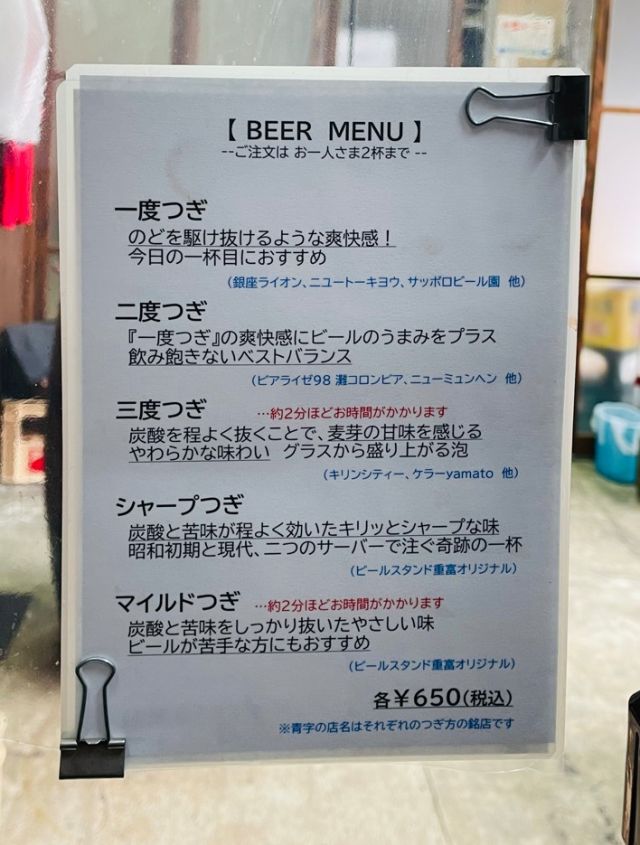 【 BEER MENU 】
--ご注文は お一人さま2杯まで --
一度つぎ
のどを駆け抜けるような爽快感!
今日の一杯目におすすめ
(銀座ライオン、ニユートーキヨウ、サッポロビール園 他)
二度つぎ
『一度つぎ』の爽快感にビールのうまみをプラス
飲み飽きないベストバランス
(ビアライゼ98 灘コロンビア、ニューミュンヘン 他)
三度つぎ …約2分ほどお時間がかかります
炭酸を程よく抜くことで、麦芽の甘味を感じる
やわらかな味わい グラスから盛り上がる泡
(キリンシティー、ケラーyamato 他)
シャープつぎ
炭酸と苦味が程よく効いたキリッとシャープな味
昭和初期と現代、二つのサーバーで注ぐ奇跡の一杯
(ビールスタンド重富オリジナル)
マイルドつぎ …約2分ほどお時間がかかります
炭酸と苦味をしっかり抜いたやさしい味
ビールが苦手な方にもおすすめ
(ビールスタンド重富オリジナル)
各¥650(税込)
※青字の店名はそれぞれのつぎ方の銘店です